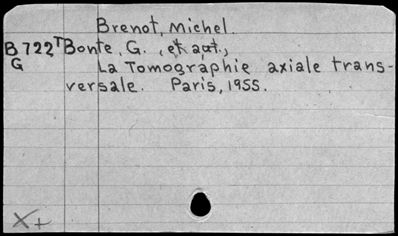 Brenot, Michel.
B722T Bonte, G. , et aut.,
G La Tomographie axiale trans-
versale. Paris, 1955.
X+